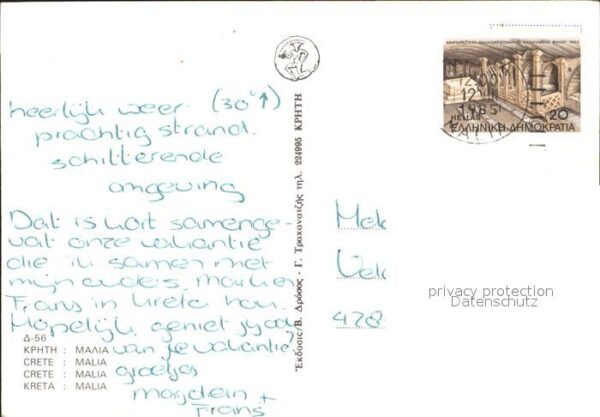 heerlijk weer. (30°↑)
prachtig strand.
schitterende
omgeving
Dat is kort samenge-
vat onze vakantie
die ik samen met
mijn ouders, Marleen
Frans in Kreta hou.
Hopelijk geniet jij ook
van je vakantie?
groetjes
Marjolein +
Frans
Δ-56
ΚΡΗΤΗ : ΜΑΛΙΑ
CRETE : MALIA
CRETE : MALIA
KRETA : MALIA
Ἔκδοσις Β. Δρόσος - Γ. Τρακανατζῆς τηλ. 224995 ΚΡΗΤΗ
1985
20
HELLAS
ΕΛΛΗΝΙΚΗ ΔΗΜΟΚΡΑΤΙΑ
Mek
Vek
428
privacy protection
Datenschutz